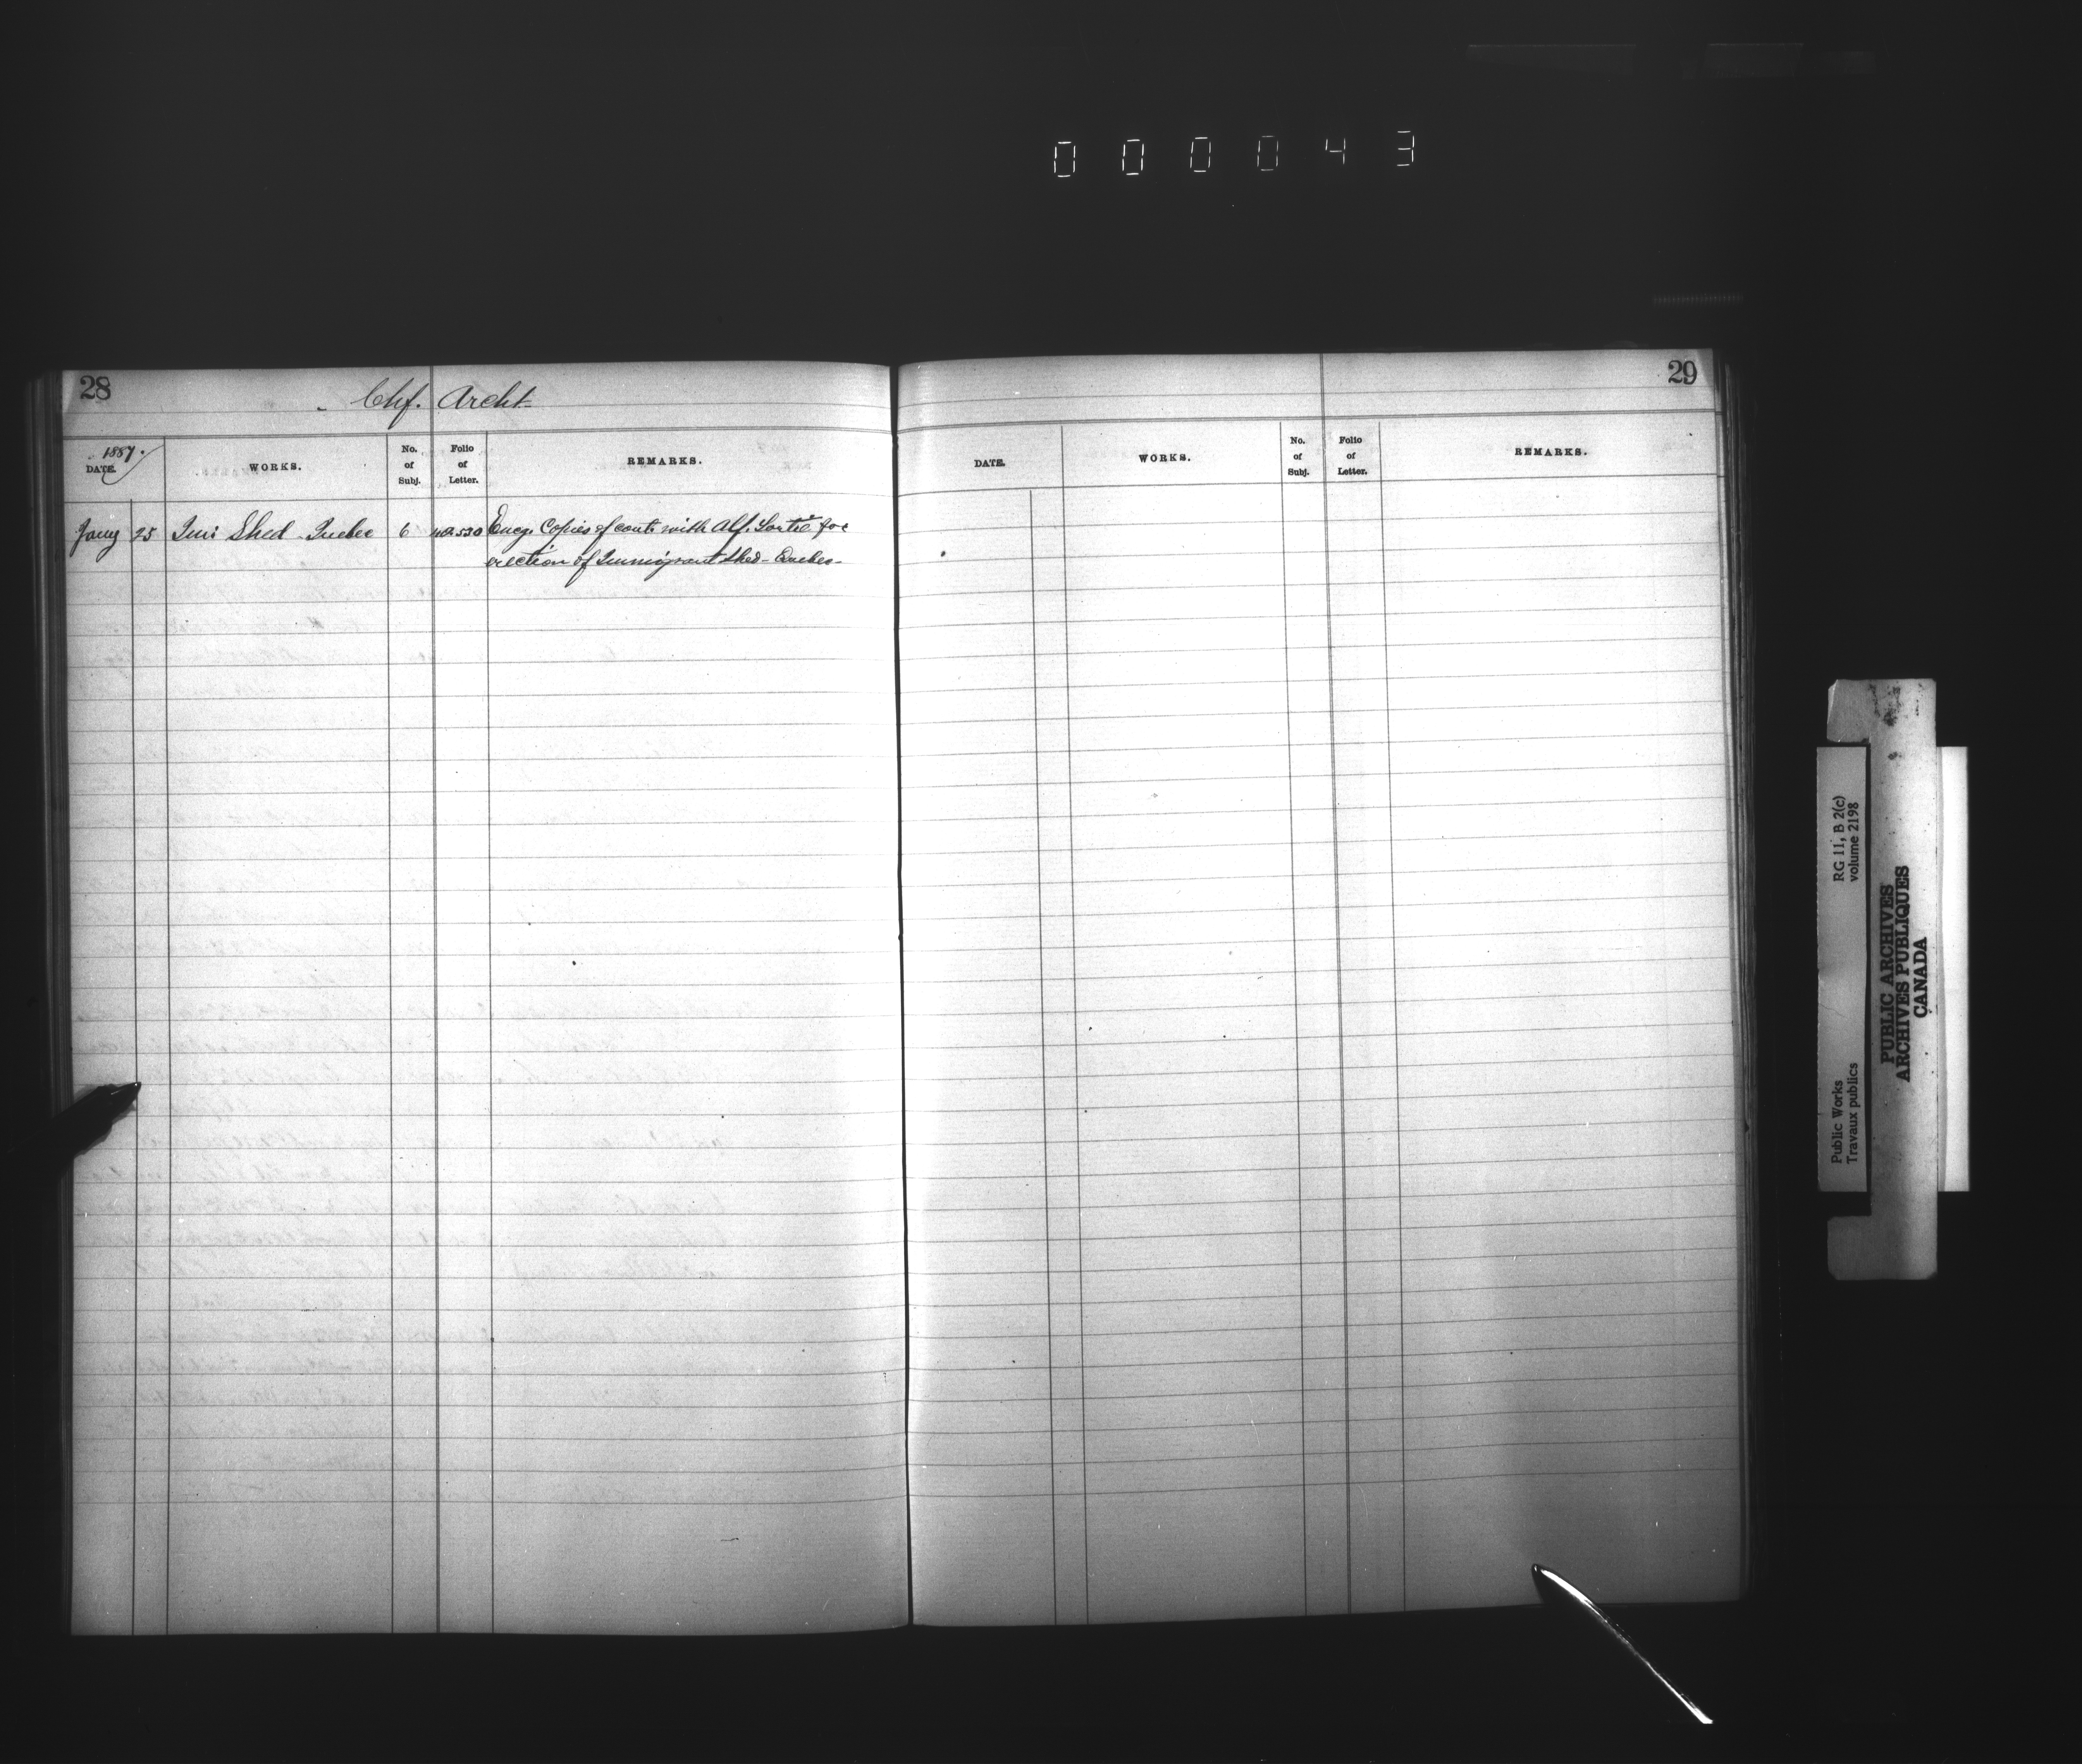 000043
28
Chf. Archt
1887.
DATE.
WORKS.
No. of Subj.
Folio of Letter.
REMARKS.
Jany 25 Imi Shed - Quebec 6 530 Encg. Copies of cont. with Alf. for
erection of Immigrant Shed - Quebec -
29
DATE.
WORKS.
No. of Subj.
Folio of Letter.
REMARKS.
RG 11, B 2(c)
volume 2198
Public Works
Travaux publics
PUBLIC ARCHIVES
ARCHIVES PUBLIQUES
CANADA